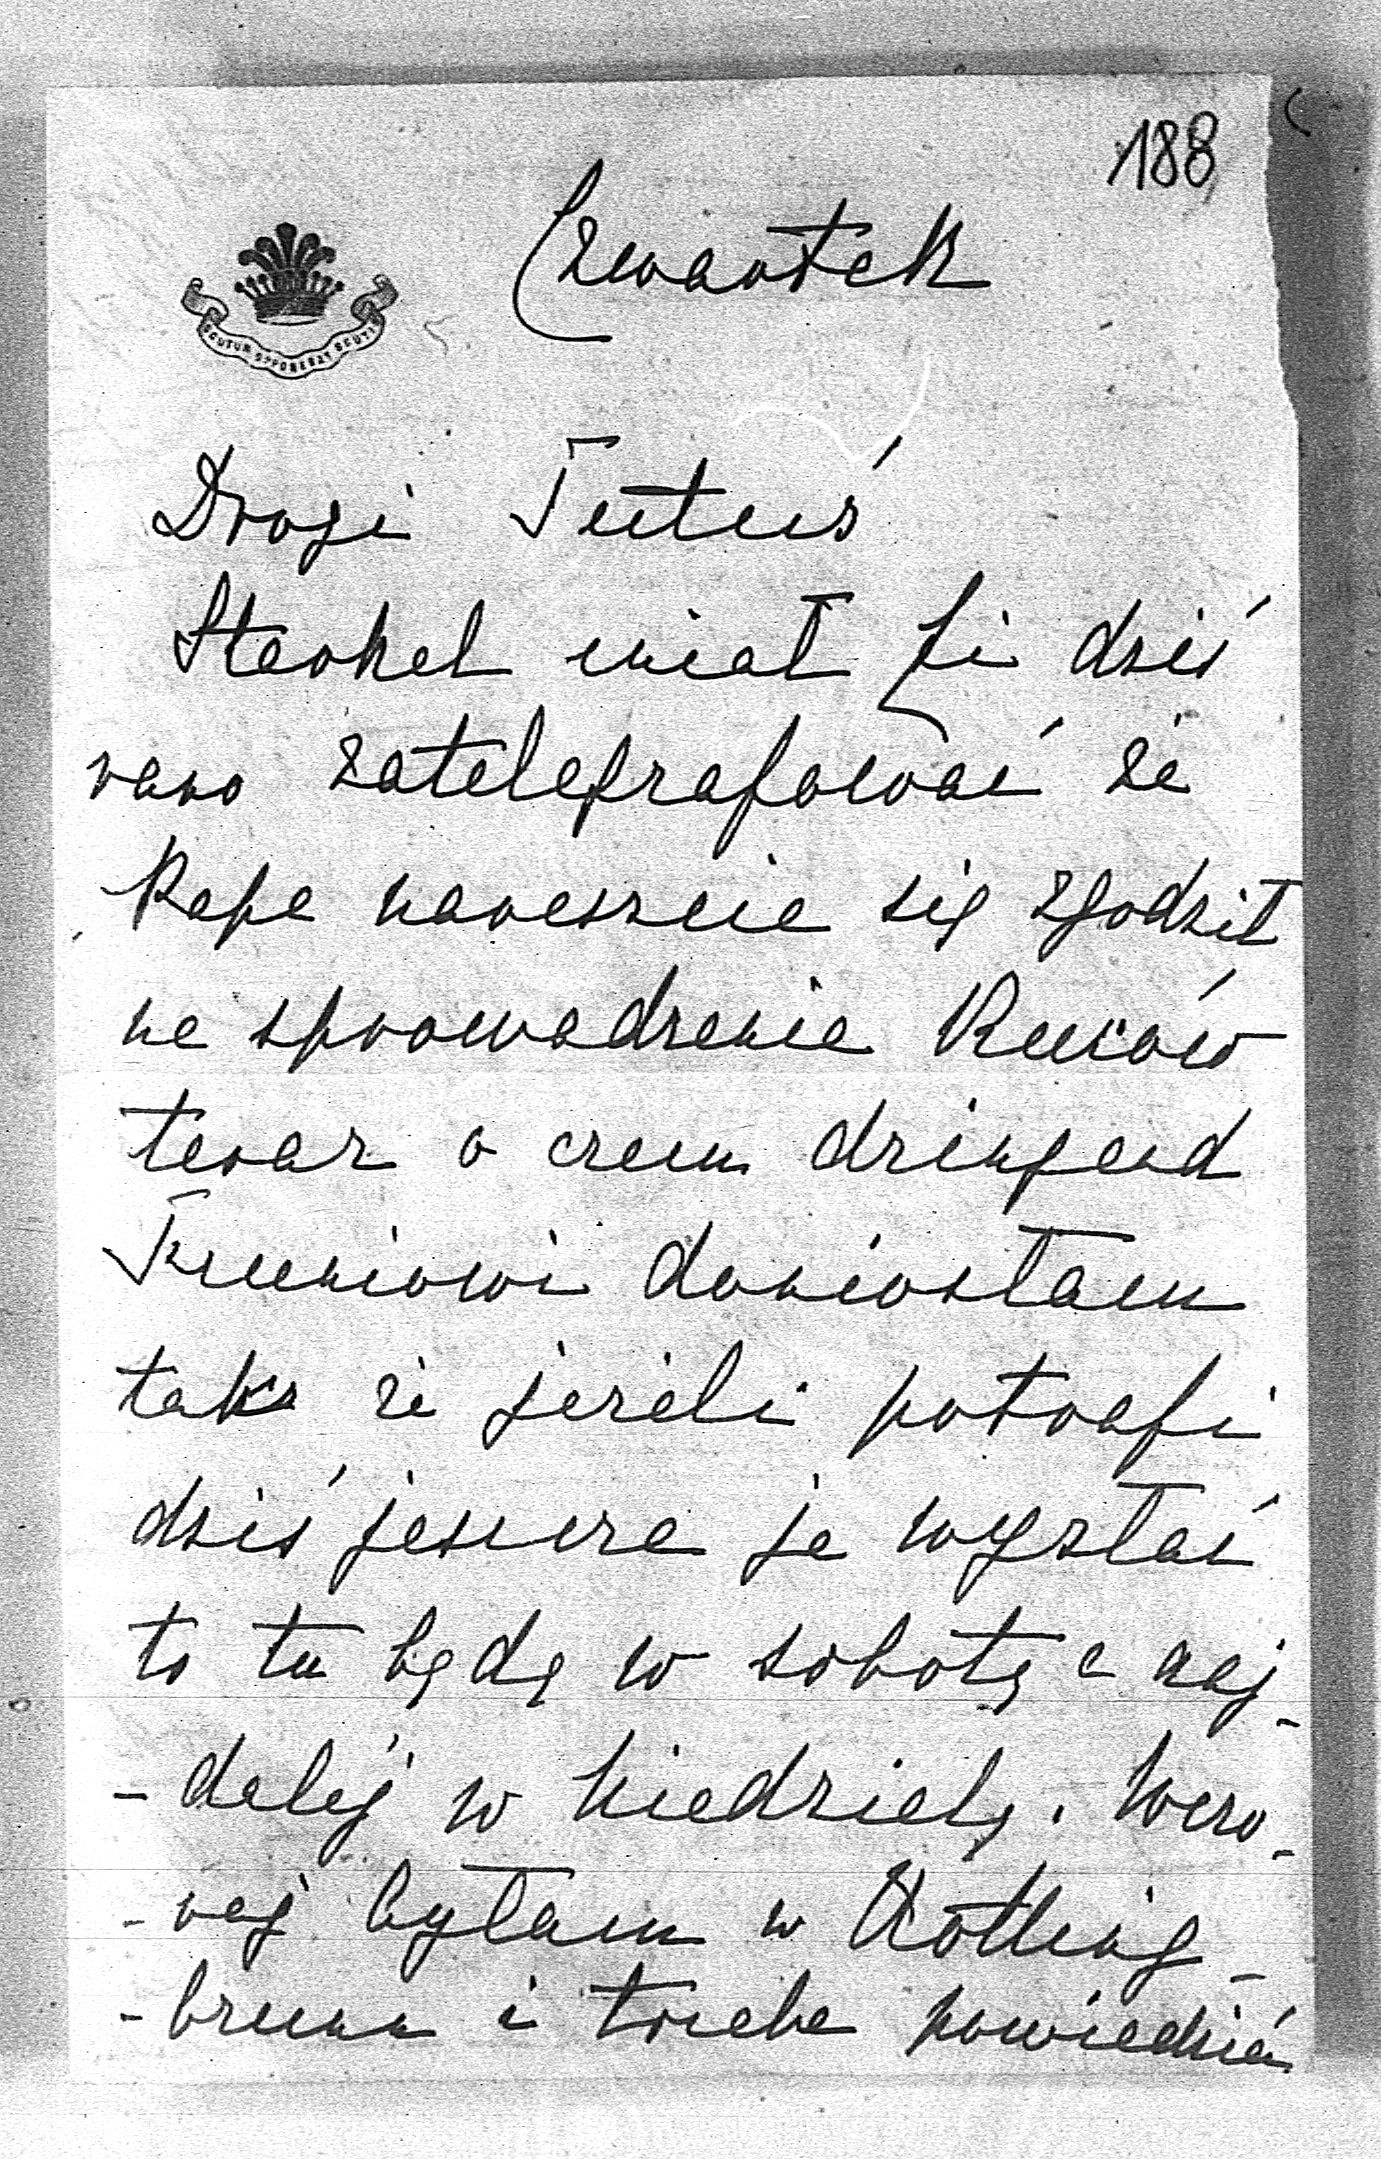 188
Czwartek
SCUTUM OPPONEBAT SCUTIS
Drogi Tutuś
Sterkel miał Ci dziś
rano zatelegrafować że
Papa nareszcie się zgodził
na sprowadzenie Kuców
teraz o czem dringend
Truniowi doniosłam
tak że jeżeli potrafi
dziś jeszcze je wysłać
to tu będą w sobotę a naj-
-dalej w Niedzielę. Wczo-
-raj byłam w Kotting-
-brunn i trzeba powiedzieć